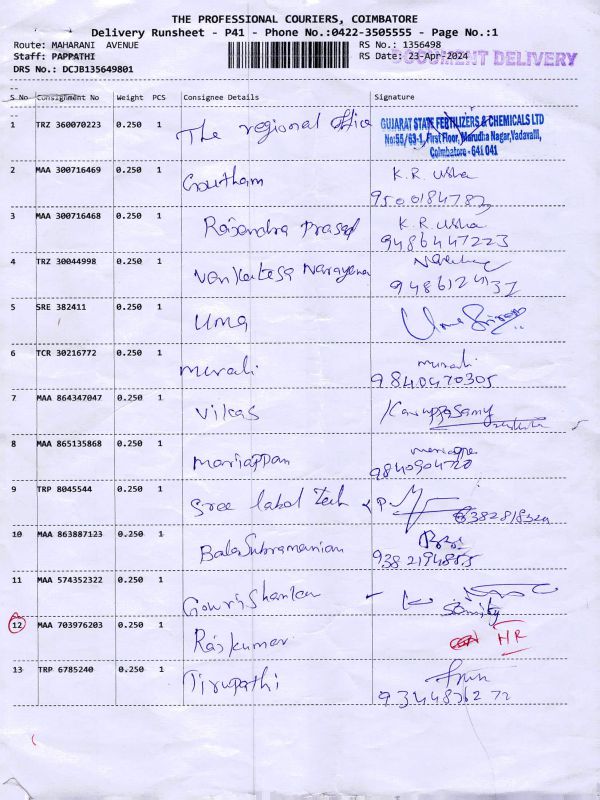 THE PROFESSIONAL COURIERS, COIMBATORE
Delivery Runsheet - P41 - Phone No.:0422-3505555 - Page No.:1
Route: MAHARANI AVENUE
RS No.: 1356498
Staff: PAPPATHI
RS Date: 23-Apr-2024
DOCUMENT DELIVERY
DRS No.: DCJB135649801
S No Consignment No Weight PCS Consignee Details Signature
1 TRZ 360070223 0.250 1 The regional office
GUJARAT STATE FERTILIZERS & CHEMICALS LTD
No:55/63-1, First Floor, Marudha Nagar, Vadavalli,
Coimbatore - 641 041
2 MAA 300716469 0.250 1 Goutham K.R. Usha
9500184783
3 MAA 300716468 0.250 1 Rajendra Prasad K.R. Usha
9486447223
4 TRZ 30044998 0.250 1 Venkatesa Narayana
5 SRE 382411 0.250 1 Uma Uma
6 TCR 30216772 0.250 1 murali murali
9840470305
7 MAA 864347047 0.250 1 Vikas Karuppasamy
8 MAA 865135868 0.250 1 mariappan
9840904720
9 TRP 8045544 0.250 1 Sree label Tech
10 MAA 863887123 0.250 1 BalaSubramanian
11 MAA 574352322 0.250 1 GowriShankar
12 MAA 703976203 0.250 1 Rajkumar HR
13 TRP 6785240 0.250 1 Tirupathi